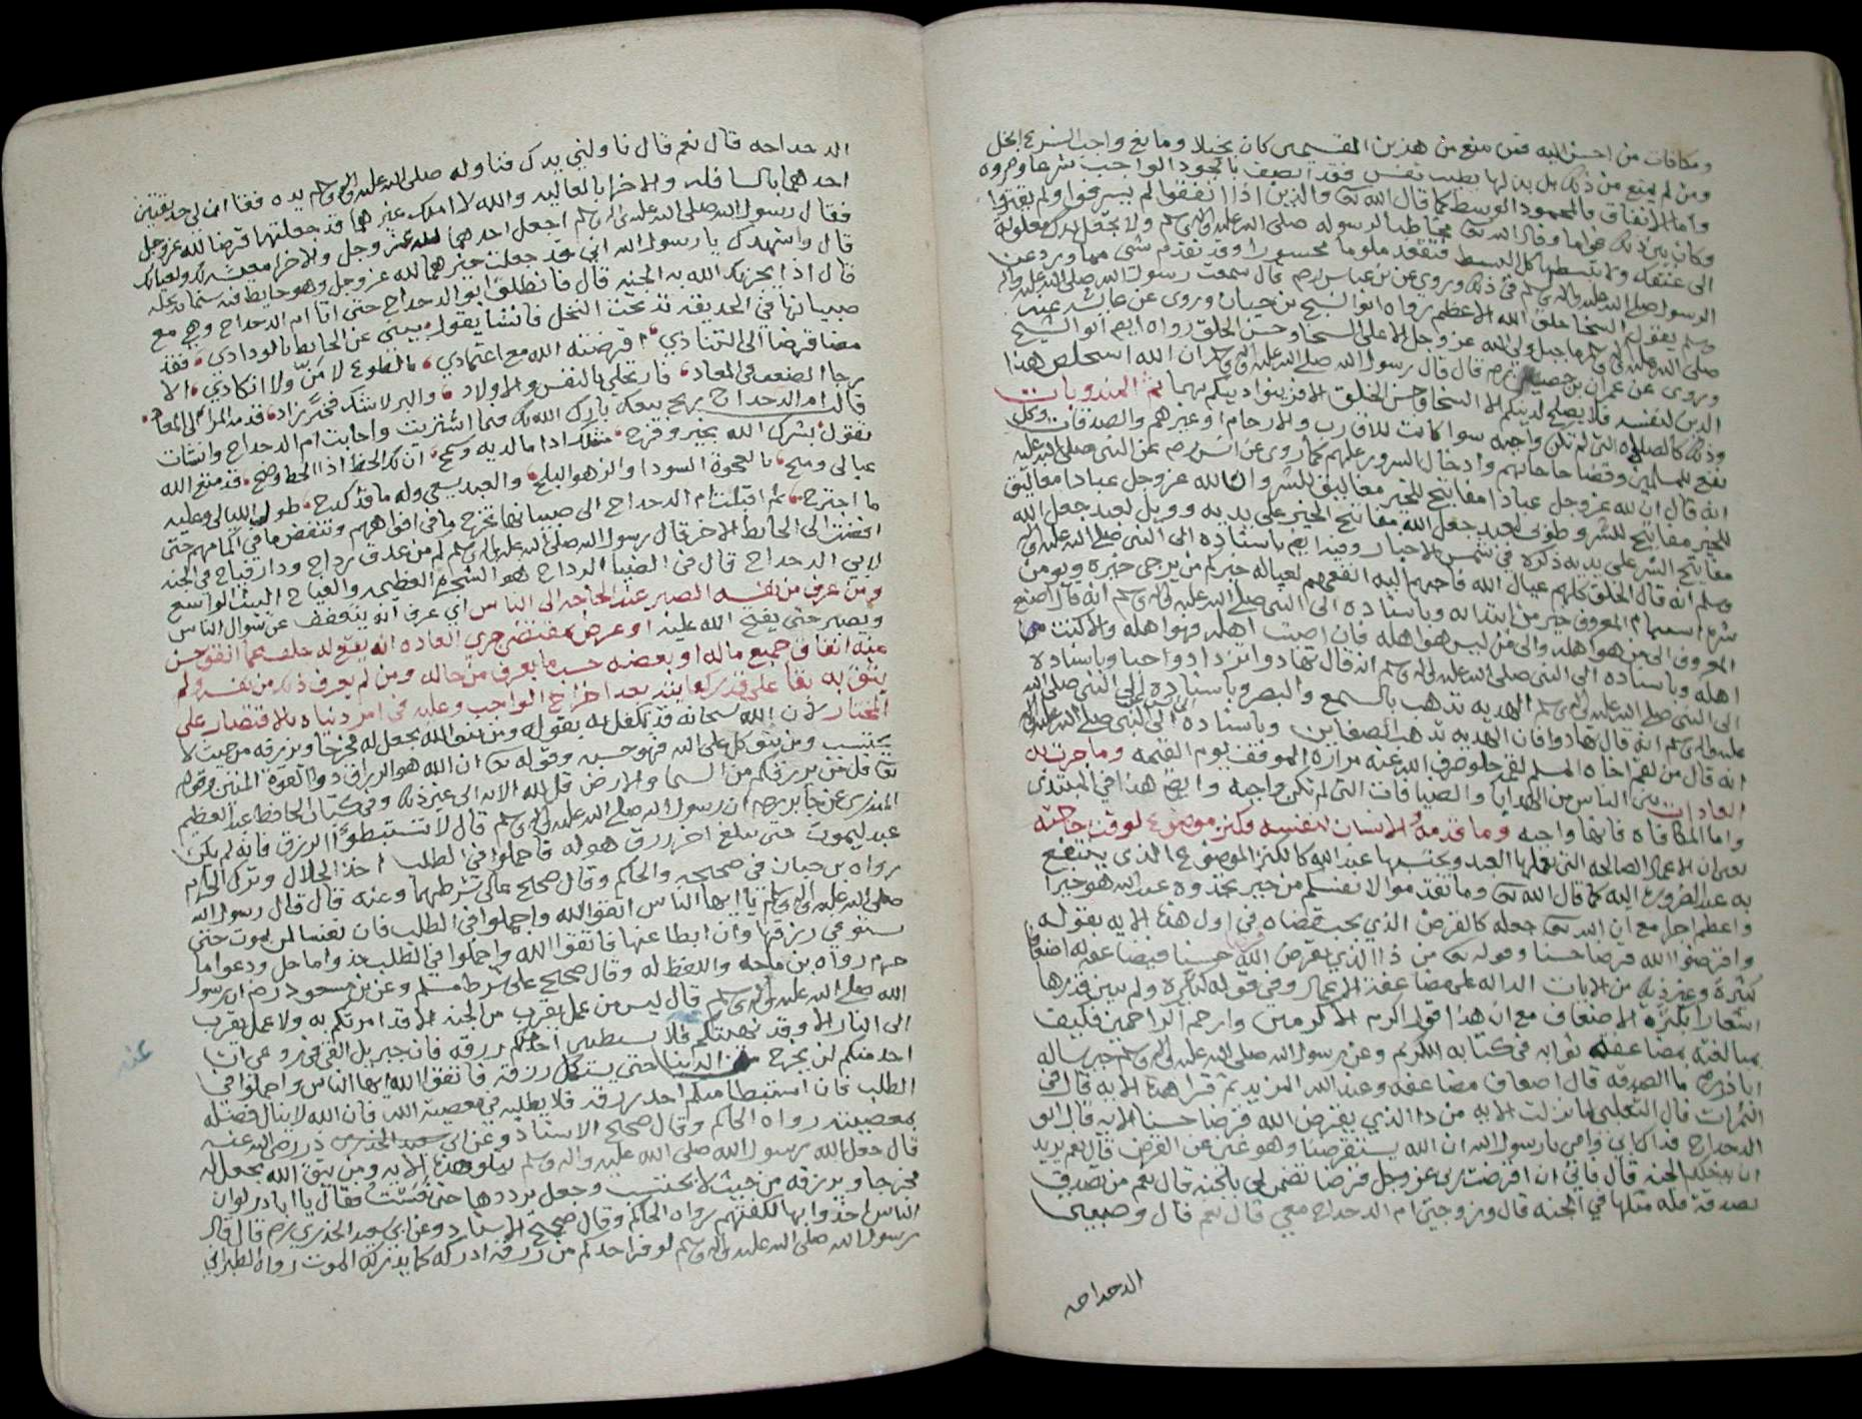 ومكافات من احسن اليه فمن منع من هذين القسمين كان بخيلا ومانع واجب الشرع ابخل
ومن لم يمنع من ذلك بل بذلها بطيب نفس فقد اتصف بالجود الواجب شرعا ومروه
واما الانفاق فالمحمود الوسط كما قال الله تعا والذين اذا انفقوا لم يسرفوا ولم يقتروا
وكان بين ذلك قواما وقال الله تعا مخاطبا لرسوله صلى الله عليه واله وسلم ولا تجعل يدك مغلولة
الى عنقك ولا تبسطها كل البسط فتقعد ملوما محسورا وقد تقدم شي مما ورد عن
الرسول صلى الله عليه واله وسلم في ذلك وروي عن بن عباس رضه قال سمعت رسول الله صلى الله عليه واله
وسلم يقول السخا خلق الله الاعظم رواه ابو الشيخ بن حبان وروى عن عايشه عنه
صلى الله عليه واله وسلم ما جبل ولي لله عز وجل الا على السخا وحسن الخلق رواه ايضا ابو الشيخ
وروى عن عمران بن حصين رضه قال قال رسول الله صلى الله عليه واله وسلم ان الله استخلص هذا
الدين لنفسه فلا يصلح لدينكم الا السخا وحسن الخلق الا فزينوا دينكم بهما ثم المندوبات
وذلك كالصله التي لم تكن واجبه سوا كانت للاقارب والارحام او غيرهم والصدقات وكل
نفع للمسلمين وقضا حاجاتهم وادخال السرور عليهم كما روى عن انس رضه عن النبي صلى الله عليه
انه قال ان لله عز وجل عبادا مفاتيح للخير مغاليق للشر وان لله عز وجل عبادا مغاليق
للخير مفاتيح للشر وطوبى لعبد جعل الله مفاتيح الخير على يديه وويل لعبد جعل الله
مفاتيح الشر على يديه ذكره في شمس الاخبار وفيه ايضا باسناده الى النبي صلى الله عليه واله
وسلم انه قال الخلق كلهم عيال الله فاحبهم اليه انفعهم لعياله خيركم من يرجى خيره ويومن
شره استمام المعروف خير من ابتدايه وباسناده الى النبي صلى الله عليه واله وسلم انه قال اصنع
المعروف الى من هو اهله والى من ليس هو اهله فان اصبت اهله فهو اهله والا كنت من
اهله وباسناده الى النبي صلى الله عليه واله وسلم انه قال تهادوا تزدادوا حبا وباسناده
الى النبي صلى الله عليه واله وسلم الهديه تذهب بالسمع والبصر وباسناده الى النبي صلى الله
عليه واله وسلم انه قال تهادوا فان الهديه تذهب الضغاين وباسناده الى النبي صلى الله عليه واله
انه قال من لقم اخاه المسلم لقمة حلو صرف الله عنه مرارة الموقف يوم القيمه وما جرت به
العادات بين الناس من الهدايا والضيافات التي لم تكن واجبه وايضا هذا في المبتدى
واما المكافاه فانها واجبه وما قدمه الانسان لنفسه فكنز موضوع لوقت حاجته
يعني ان الاعمال الصالحه التي يعملها العبد ويحتسبها عند الله كالكنز الموضوع الذي ينتفع
به عند الضروره اليه كما قال الله تعا وما تقدموا لانفسكم من خير تجدوه عند الله هو خيرا
واعظم اجرا مع ان الله تعا جعله كالقرض الذي يجب قضاه في اول هذه الايه بقوله
واقرضوا الله قرضا حسنا وقوله تعا من ذا الذي يقرض الله قرضا حسنا فيضاعفه له اضعافا
كثيرة وغير ذلك من الايات الداله على مضاعفة الاعمال وفي قوله كثيرة ولم يبين قدرها
اشعارا بكثرة الاضعاف مع ان هذا قول اكرم الاكرمين وارحم الراحمين فكيف
مبالغته بمضاعفة ثوابه في كتابه الكريم وعن رسول الله صلى الله عليه واله وسلم حين ساله
ابا ذر رضه ما الصدقه قال اضعاف مضاعفه وعند الله المزيد ثم قرا هذه الايه قال في
الثمرات قال الثعلبي لما نزلت الايه من ذا الذي يقرض الله قرضا حسنا الايه قال ابو
الدحداح فداك ابي وامي يا رسول الله ان الله يستقرضنا وهو غني عن القرض قال نعم يريد
ان يدخلكم الجنه قال فاني ان اقرضت ربي عز وجل قرضا تضمن لي بالجنه قال نعم من تصدق
بصدقة فله مثلها في الجنه قال وزوجتي ام الدحداح معي قال نعم قال وصبيتي
الدحداحه
الدحداحه قال نعم قال ناولني يدك فناوله صلى الله عليه واله وسلم يده فقال ان لي حديقتين
احدهما بالسافله والاخرا بالعاليه والله لا املك غيرهما قد جعلتهما قرضا لله عز وجل
فقال رسول الله صلى الله عليه واله وسلم اجعل احدهما لله عز وجل والاخرا معيشه لك ولعيالك
قال واشهدك يا رسول الله اني قد جعلت خيرهما لله عز وجل وهو حايط فيه ستمايه نخله
قال اذا يجزيك الله به الجنه قال فانطلق ابو الدحداح حتى اتا ام الدحداح وهي مع
صبيانها في الحديقه تدور تحت النخل فانشا يقول بيني عن الحايط بالودادي فقد
مضا قرضا الى التنادي اقرضته الله مع اعتمادي بالطوع لا من ولا انكادي الا
رجا الضعف في المعاد فارتحلي بالنفس والاولاد والبر لاشك فخير زاد قدمه المرء الى المعاد
قالت ام الدحداح ربح بيعك بارك الله لك فيما اشتريت واجابت ام الدحداح وانشات
تقول بشرك الله بخير وفرح مثلك ادا ما لديه ونصح ان لك الحظ اذا الحظ وضح قد متع الله
عيالي ومنح بالعجوة السودا والزهو البلح والعبد يسعى وله ما قد كدح طول الليالي وعليه
ما اجترح ثم اقبلت ام الدحداح الى صبيانها تخرج ما في افواههم وتنفض ما في اكمامهم حتى
افضت الى الحايط الاخر فقال رسول الله صلى الله عليه واله وسلم كم من عذق رداح ودار فياح في الجنه
لابي الدحداح قال في الضيا الرداح هو الشجرة العظيمه والفياح البيت الواسع
ومن عرف من نفسه الصبر عند الحاجه الى الناس اي عرف انه يتعفف عن سوال الناس
ويصبر حتى يفتح الله عليه او عرض بمقتضى جري العاده انه يعوله خلف مما انفق حسن
منه انفاق جميع ماله او بعضه حسب ما يعرف من حاله ومن لم يعرف ذلك من نفسه ولم
يثق به بقا على قدر كفايته بعد اخراج الواجب وعليه في امر دنياه بالاقتصار على
المختار لان الله سبحانه قد تكفل له بقوله ومن يتق الله يجعل له مخرجا ويرزقه من حيث لا
يحتسب ومن يتوكل على الله فهو حسبه وقوله تعا ان الله هو الرزاق ذوا القوة المتين وقوله
تعا قل من يرزقكم من السما والارض قل الله الايه الى غير ذلك وفي كتاب الحافظ عبد العظيم
المنذري عن جابر رضه ان رسول الله صلى الله عليه واله وسلم قال لا تستبطوا الرزق فانه لم يكن
عبد ليموت حتى يبلغ اخر رزق هو له فاجملوا في الطلب اخذ الحلال وترك الحرام
رواه بن حبان في صحيحه والحاكم وقال صحيح على شرطهما وعنه قال قال رسول الله
صلى الله عليه واله وسلم يا ايها الناس اتقوا الله واجملوا في الطلب فان نفسا لن يموت حتى
يستوفي رزقها وان ابطا عنها فاتقوا الله واجملوا في الطلب خذوا ما حل ودعوا ما
حرم رواه بن ماجه واللفظ له وقال صحيح على شرط مسلم وعن بن مسعود رضه ان رسول
الله صلى الله عليه واله وسلم قال ليس من عمل يقرب من الجنه الا قد امرتكم به ولا عمل يقرب
الى النار الا وقد نهيتكم فلا يستبطين احدكم رزقه فان جبريل القى في روعي ان
احد منكم لن يخرج من الدنيا حتى يستكمل رزقه فاتقوا الله ايها الناس واجملوا في
الطلب فان استبطا منكم احد رزقه فلا يطلبه في معصية الله فان الله لا ينال فضله
بمعصيته رواه الحاكم وقال صحيح الاسناد وعن ابي ذر رضي الله عنه
قال جعل رسول الله صلى الله عليه واله وسلم يتلو هذه الايه ومن يتق الله يجعل له
مخرجا ويرزقه من حيث لا يحتسب وجعل يرددها حتى نعست فقال يا اباذر لو ان
الناس اخذوا بها لكفتهم رواه الحاكم وقال صحيح الاسناد وعن ابي سعيد الخدري رضه قال قال
رسول الله صلى الله عليه واله وسلم لو فر احدكم من رزقه ادركه كما يدركه الموت رواه الطبراني